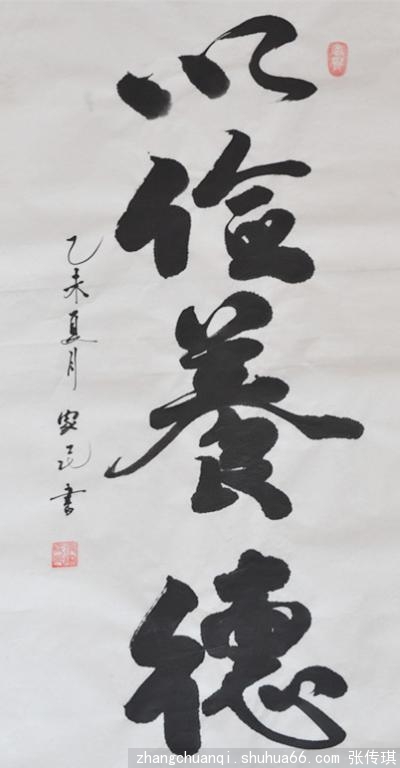 以儉養德
乙未夏月
书
zhangchuanqi.shuhua66.com 张传琪